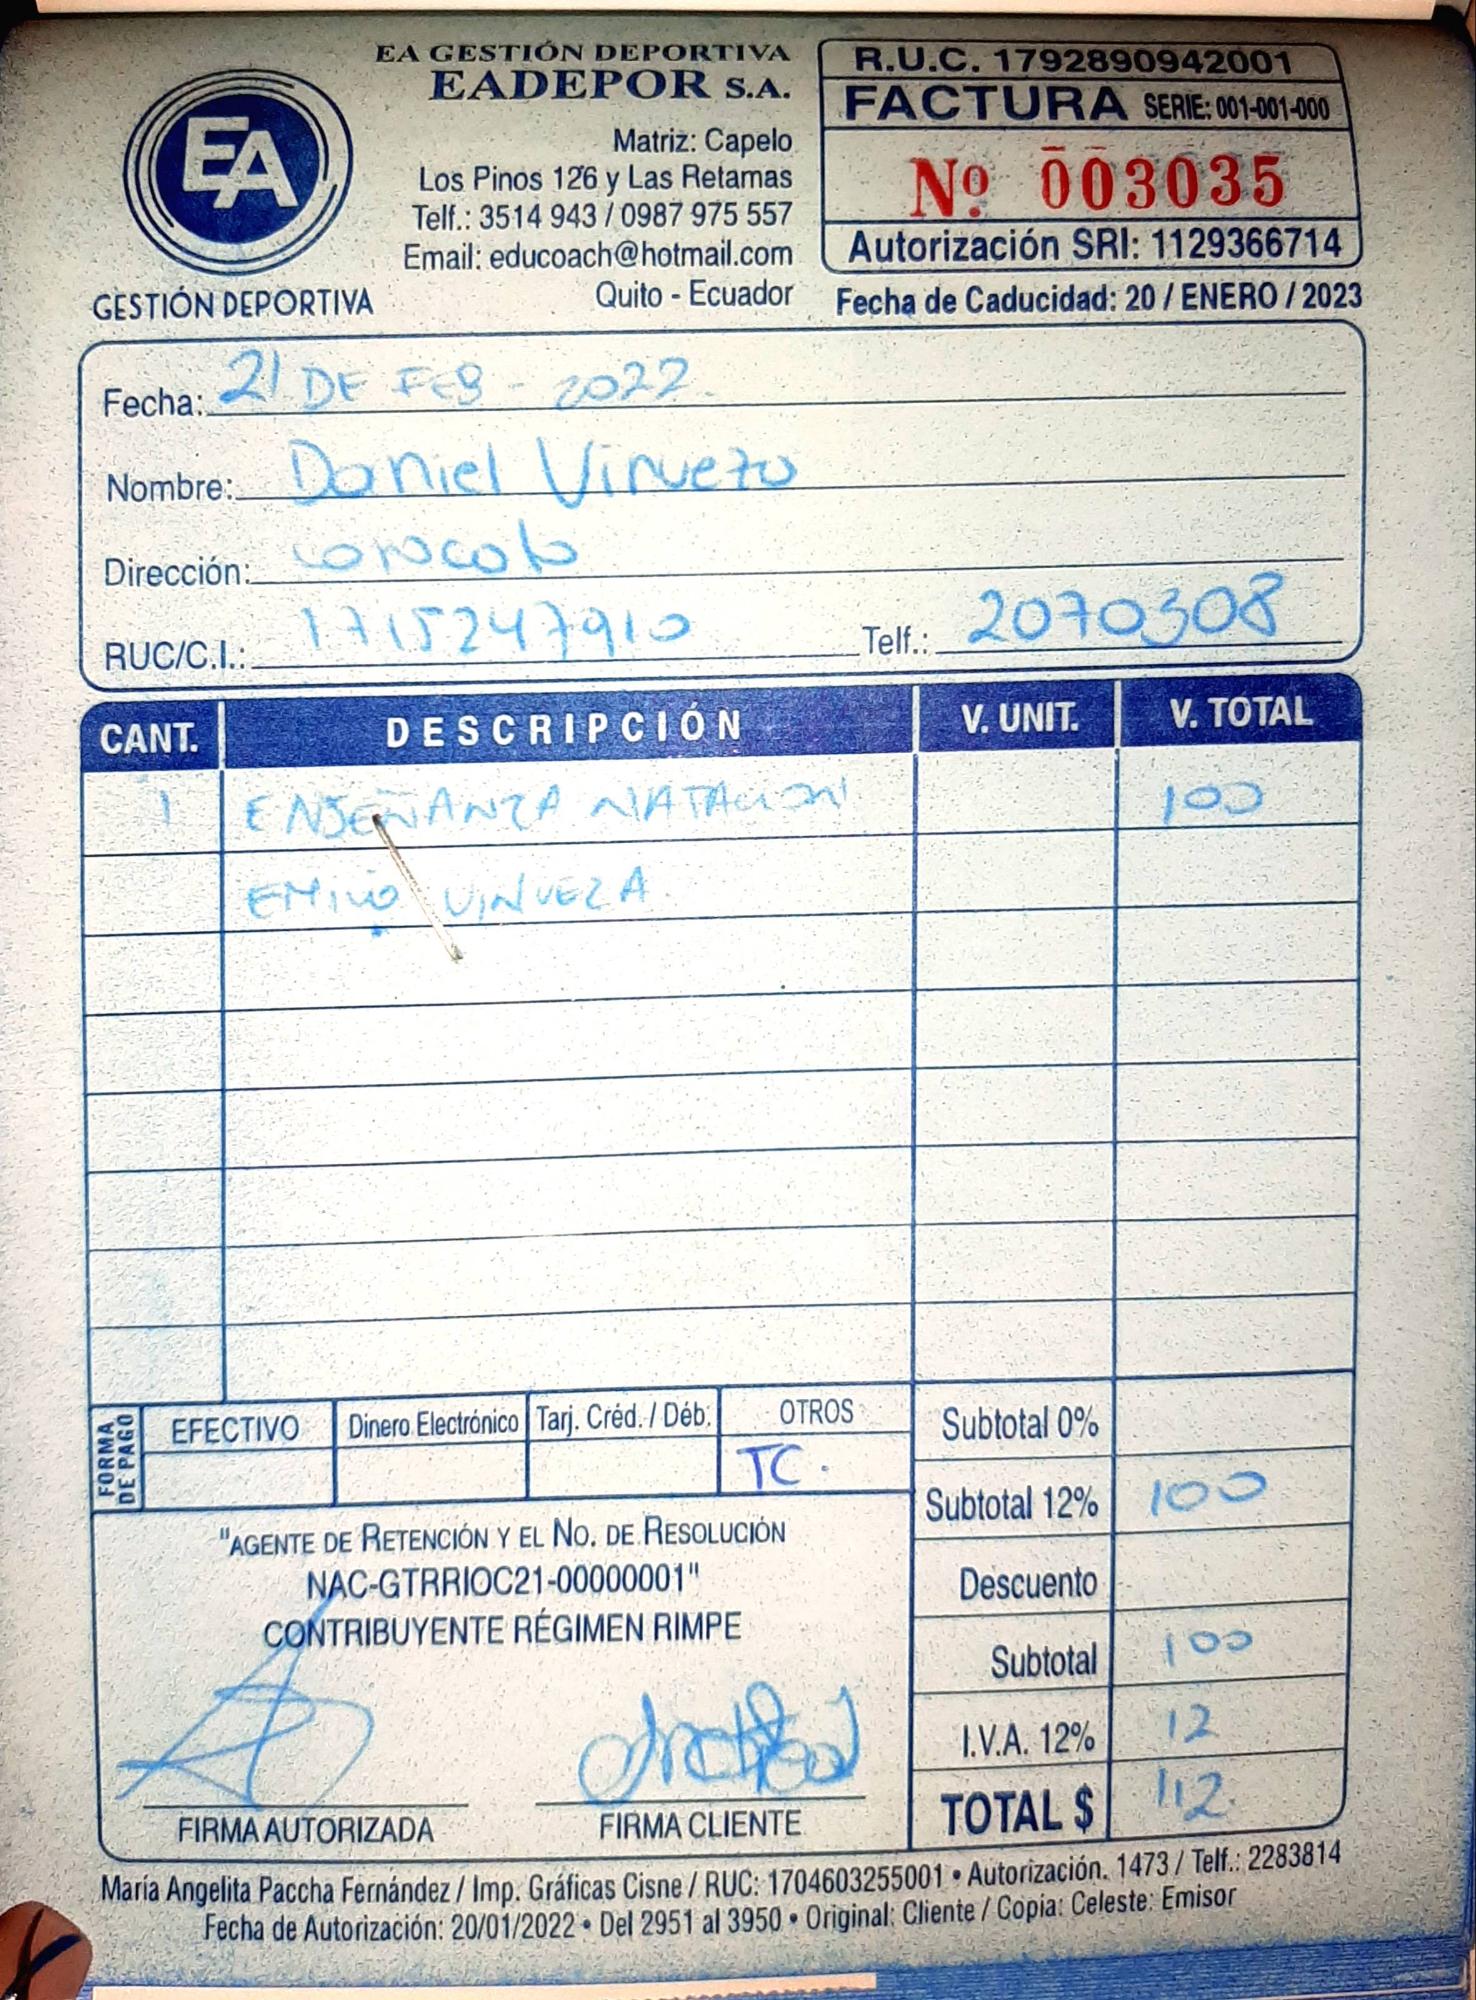 EA GESTIÓN DEPORTIVA
EADEPOR S.A.
EA
GESTIÓN DEPORTIVA
Matriz: Capelo
Los Pinos 126 y Las Retamas
Telf.: 3514 943 / 0987 975 557
Email: educoach@hotmail.com
Quito - Ecuador
R.U.C. 1792890942001
FACTURA SERIE: 001-001-000
Nº 003035
Autorización SRI: 1129366714
Fecha de Caducidad: 20 / ENERO / 2023
Fecha: 21 DE FEB - 2022.
Nombre: Daniel Vinueza
Dirección:
RUC/C.I.: 1715247910 Telf.: 2070308
CANT. DESCRIPCIÓN V. UNIT. V. TOTAL
1 ENSEÑANZA NATACION 100
EMILIO VINUEZA.
FORMA DE PAGO
EFECTIVO Dinero Electrónico Tarj. Créd. / Déb. OTROS
TC.
Subtotal 0%
Subtotal 12% 100
Descuento
Subtotal 100
I.V.A. 12% 12
TOTAL $ 112.
"AGENTE DE RETENCIÓN Y EL NO. DE RESOLUCIÓN
NAC-GTRRIOC21-00000001"
CONTRIBUYENTE RÉGIMEN RIMPE
FIRMA AUTORIZADA FIRMA CLIENTE
María Angelita Paccha Fernández / Imp. Gráficas Cisne / RUC: 1704603255001 • Autorización. 1473 / Telf.: 2283814
Fecha de Autorización: 20/01/2022 • Del 2951 al 3950 • Original: Cliente / Copia: Celeste: Emisor